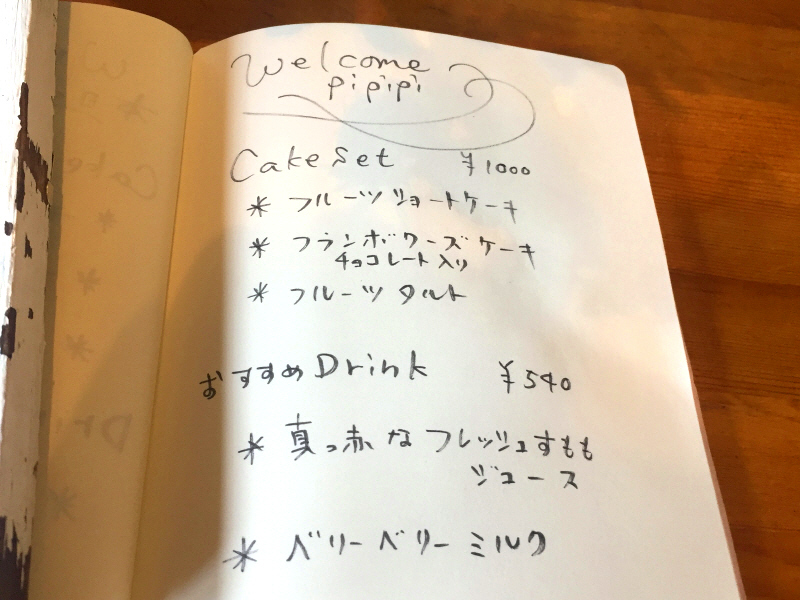 Welcome
pipipi
Cake Set ¥1000
* フルーツショートケーキ
* フランボワーズケーキ
チョコレート入り
* フルーツタルト
おすすめ Drink ¥540
* 真っ赤なフレッシュすもも
ジュース
* ベリーベリーミルク